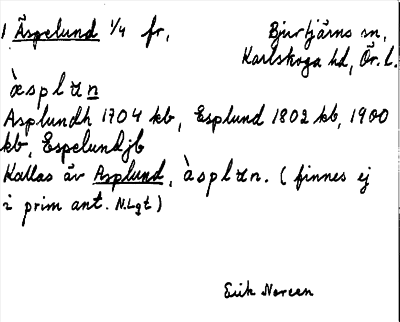 1 Äspelund 1/4 fr, Bjurtjärns sn,
Karlskoga hd, Ör. l.
àsplun
Asplundh 1704 kb, Esplund 1802 kb, 1900
kb, Espelund jb
Kallas äv Asplund, àsplun. (finnes ej
i prim ant. N.Lgt)
Erik Noreen